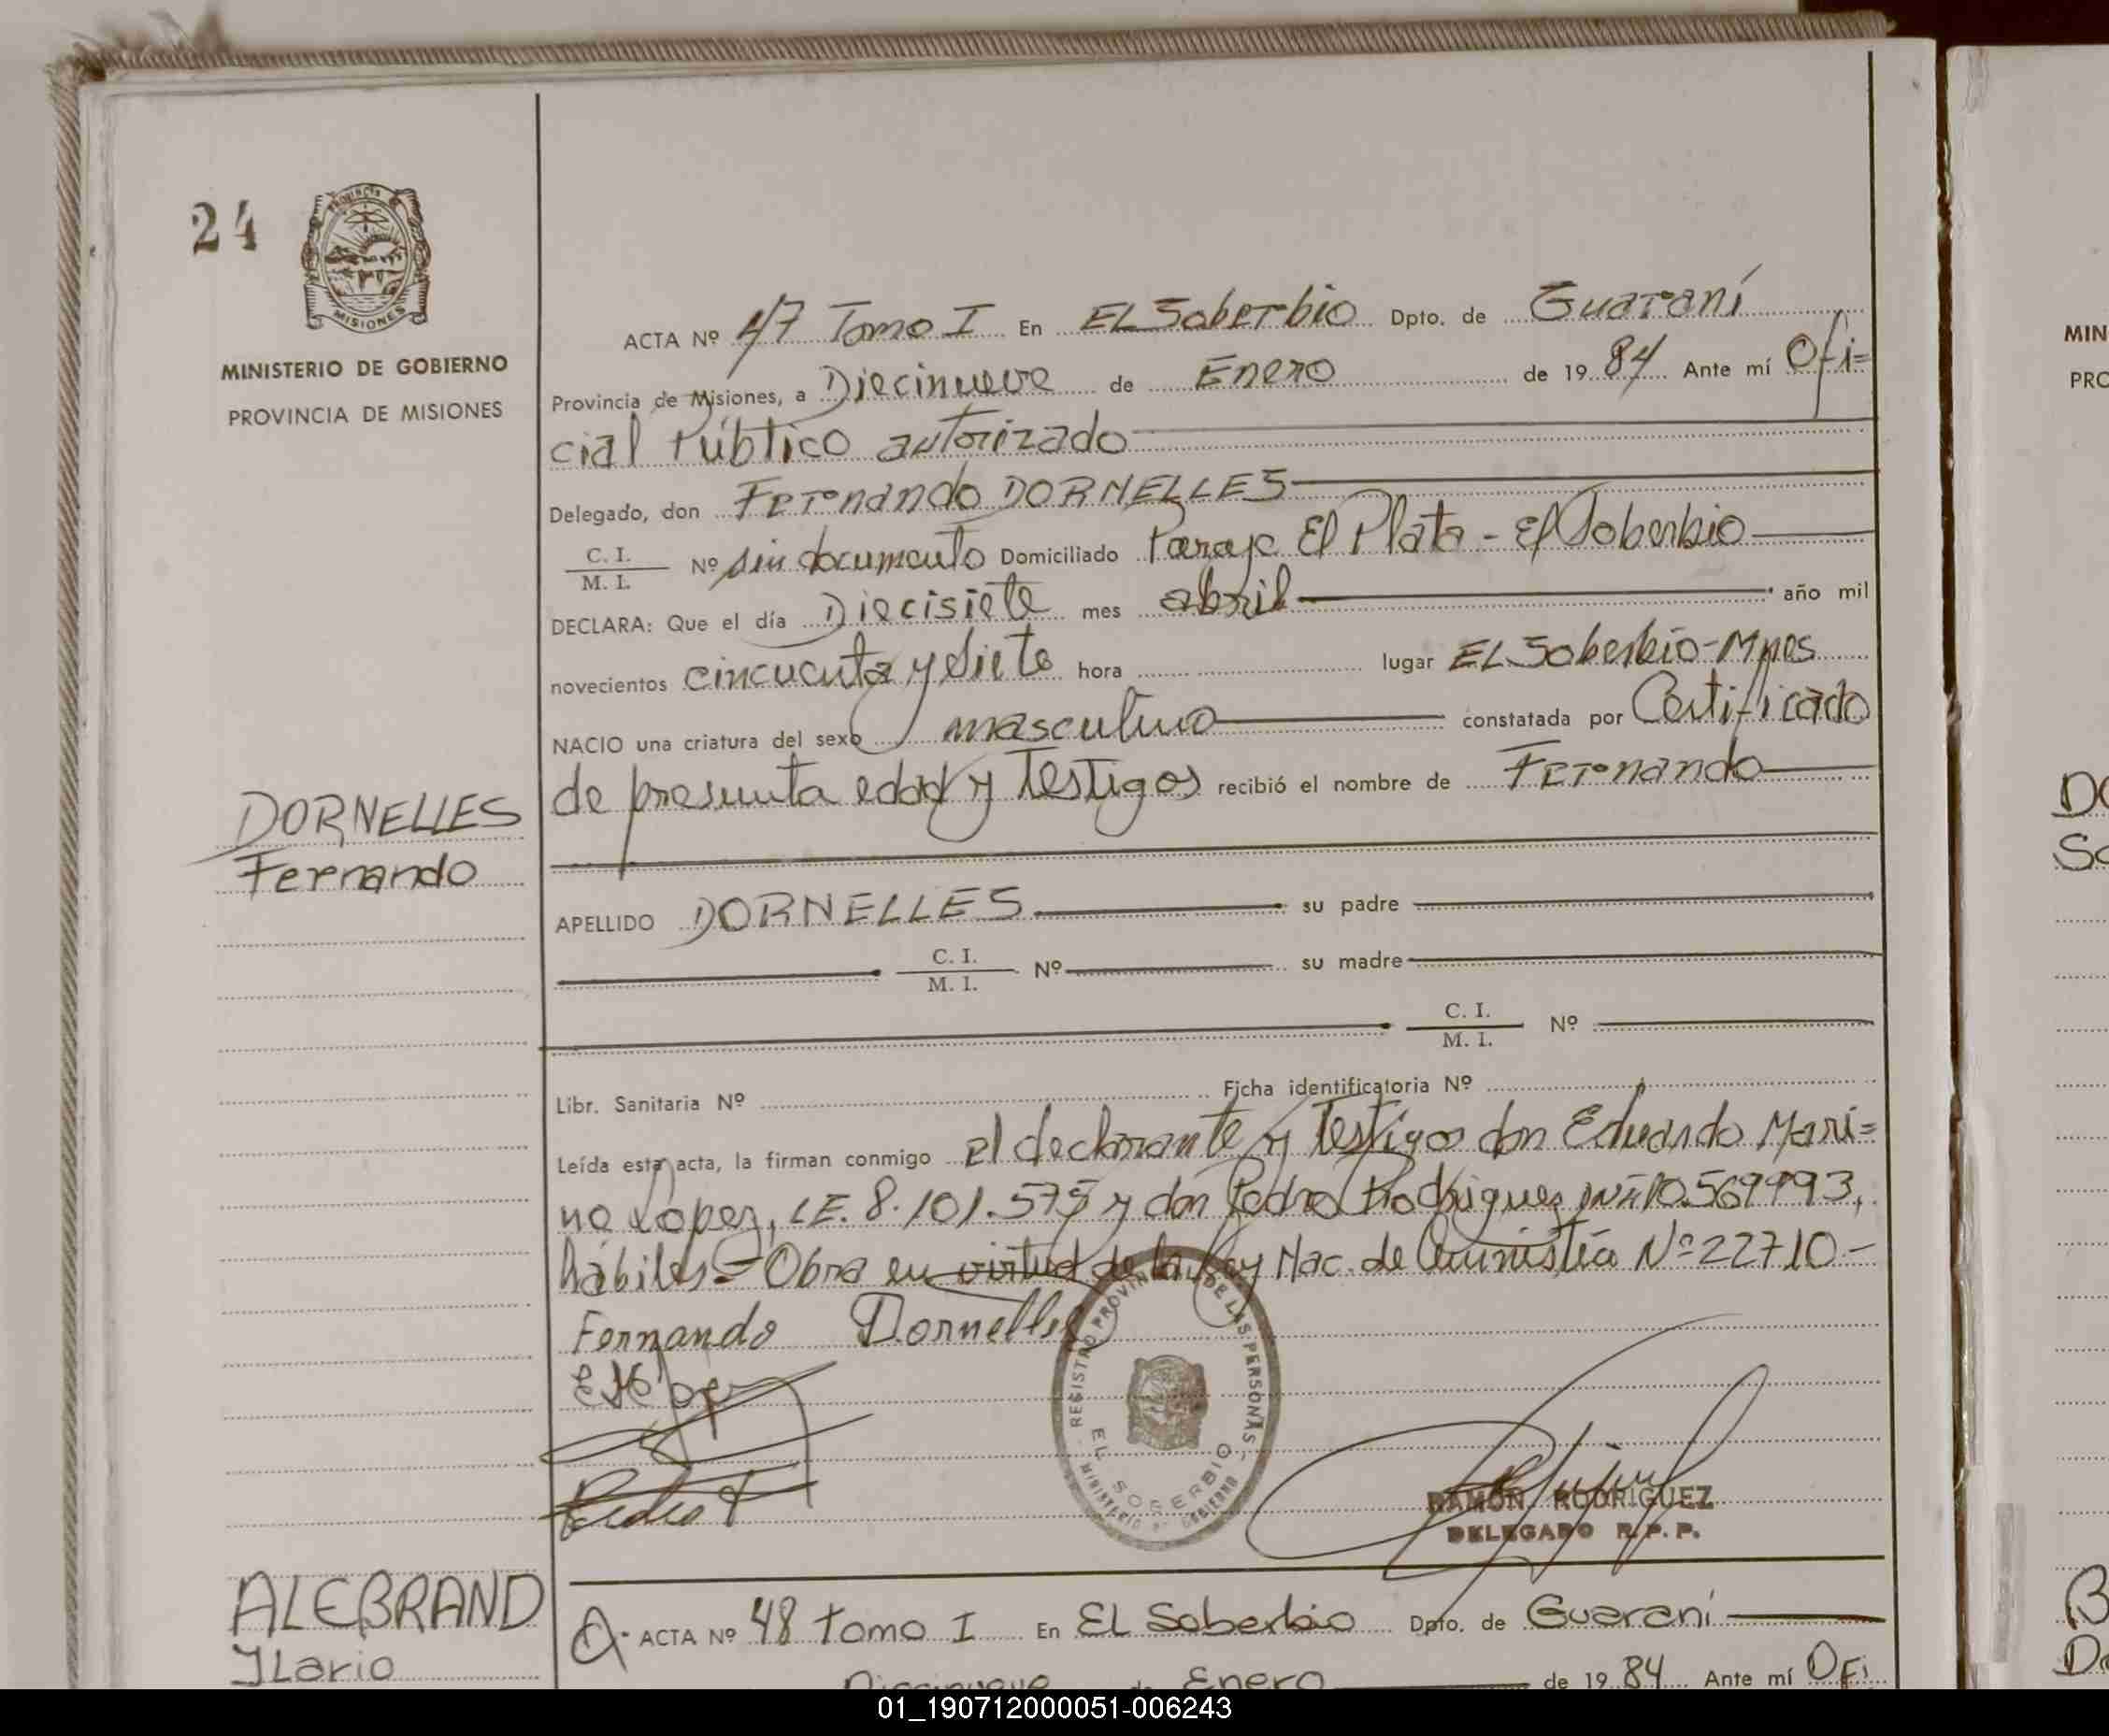 24
PROVINCIA
MISIONES
MINISTERIO DE GOBIERNO
PROVINCIA DE MISIONES
ACTA Nº 47 Tomo I En EL Soberbio Dpto. de Guaraní
Provincia de Misiones, a Diecinueve de Enero de 1984 Ante mí Ofi=
cial Público autorizado
Delegado, don Fernando DORNELLES
C. I.
M. I. Nº sin documento Domiciliado Paraje El Plata - El Soberbio
DECLARA: Que el día Diecisiete mes abril año mil
novecientos cincuenta y siete hora lugar EL Soberbio-Mnes
NACIO una criatura del sexo masculino constatada por Certificado
DORNELLES
Fernando
de presunta edad y Testigos recibió el nombre de Fernando
APELLIDO DORNELLES su padre
C. I.
M. I. Nº su madre
C. I.
M. I. Nº
Libr. Sanitaria Nº Ficha identificatoria Nº
Leída esta acta, la firman conmigo el declarante y Testigos don Eduardo Mari=
no Lopez, LE. 8.101.575 y don Pedro Rodriguez
hábiles = Obra en virtud de la Ley Nac. de Amnistía Nº 22710.-
Fernando Dornelles
REGISTRO PROVINCIAL DE LAS PERSONAS
EL SOBERBIO
MINISTERIO DE GOBIERNO
Pedro
RAMON RODRIGUEZ
DELEGADO R. P. P.
ALEBRAND
Ylario
ACTA Nº 48 tomo I En EL Soberbio Dpto. de Guaraní
Diecinueve de Enero de 1984 Ante mí Ofi
MIN
PRO
DO
So
B
De
01_190712000051-006243